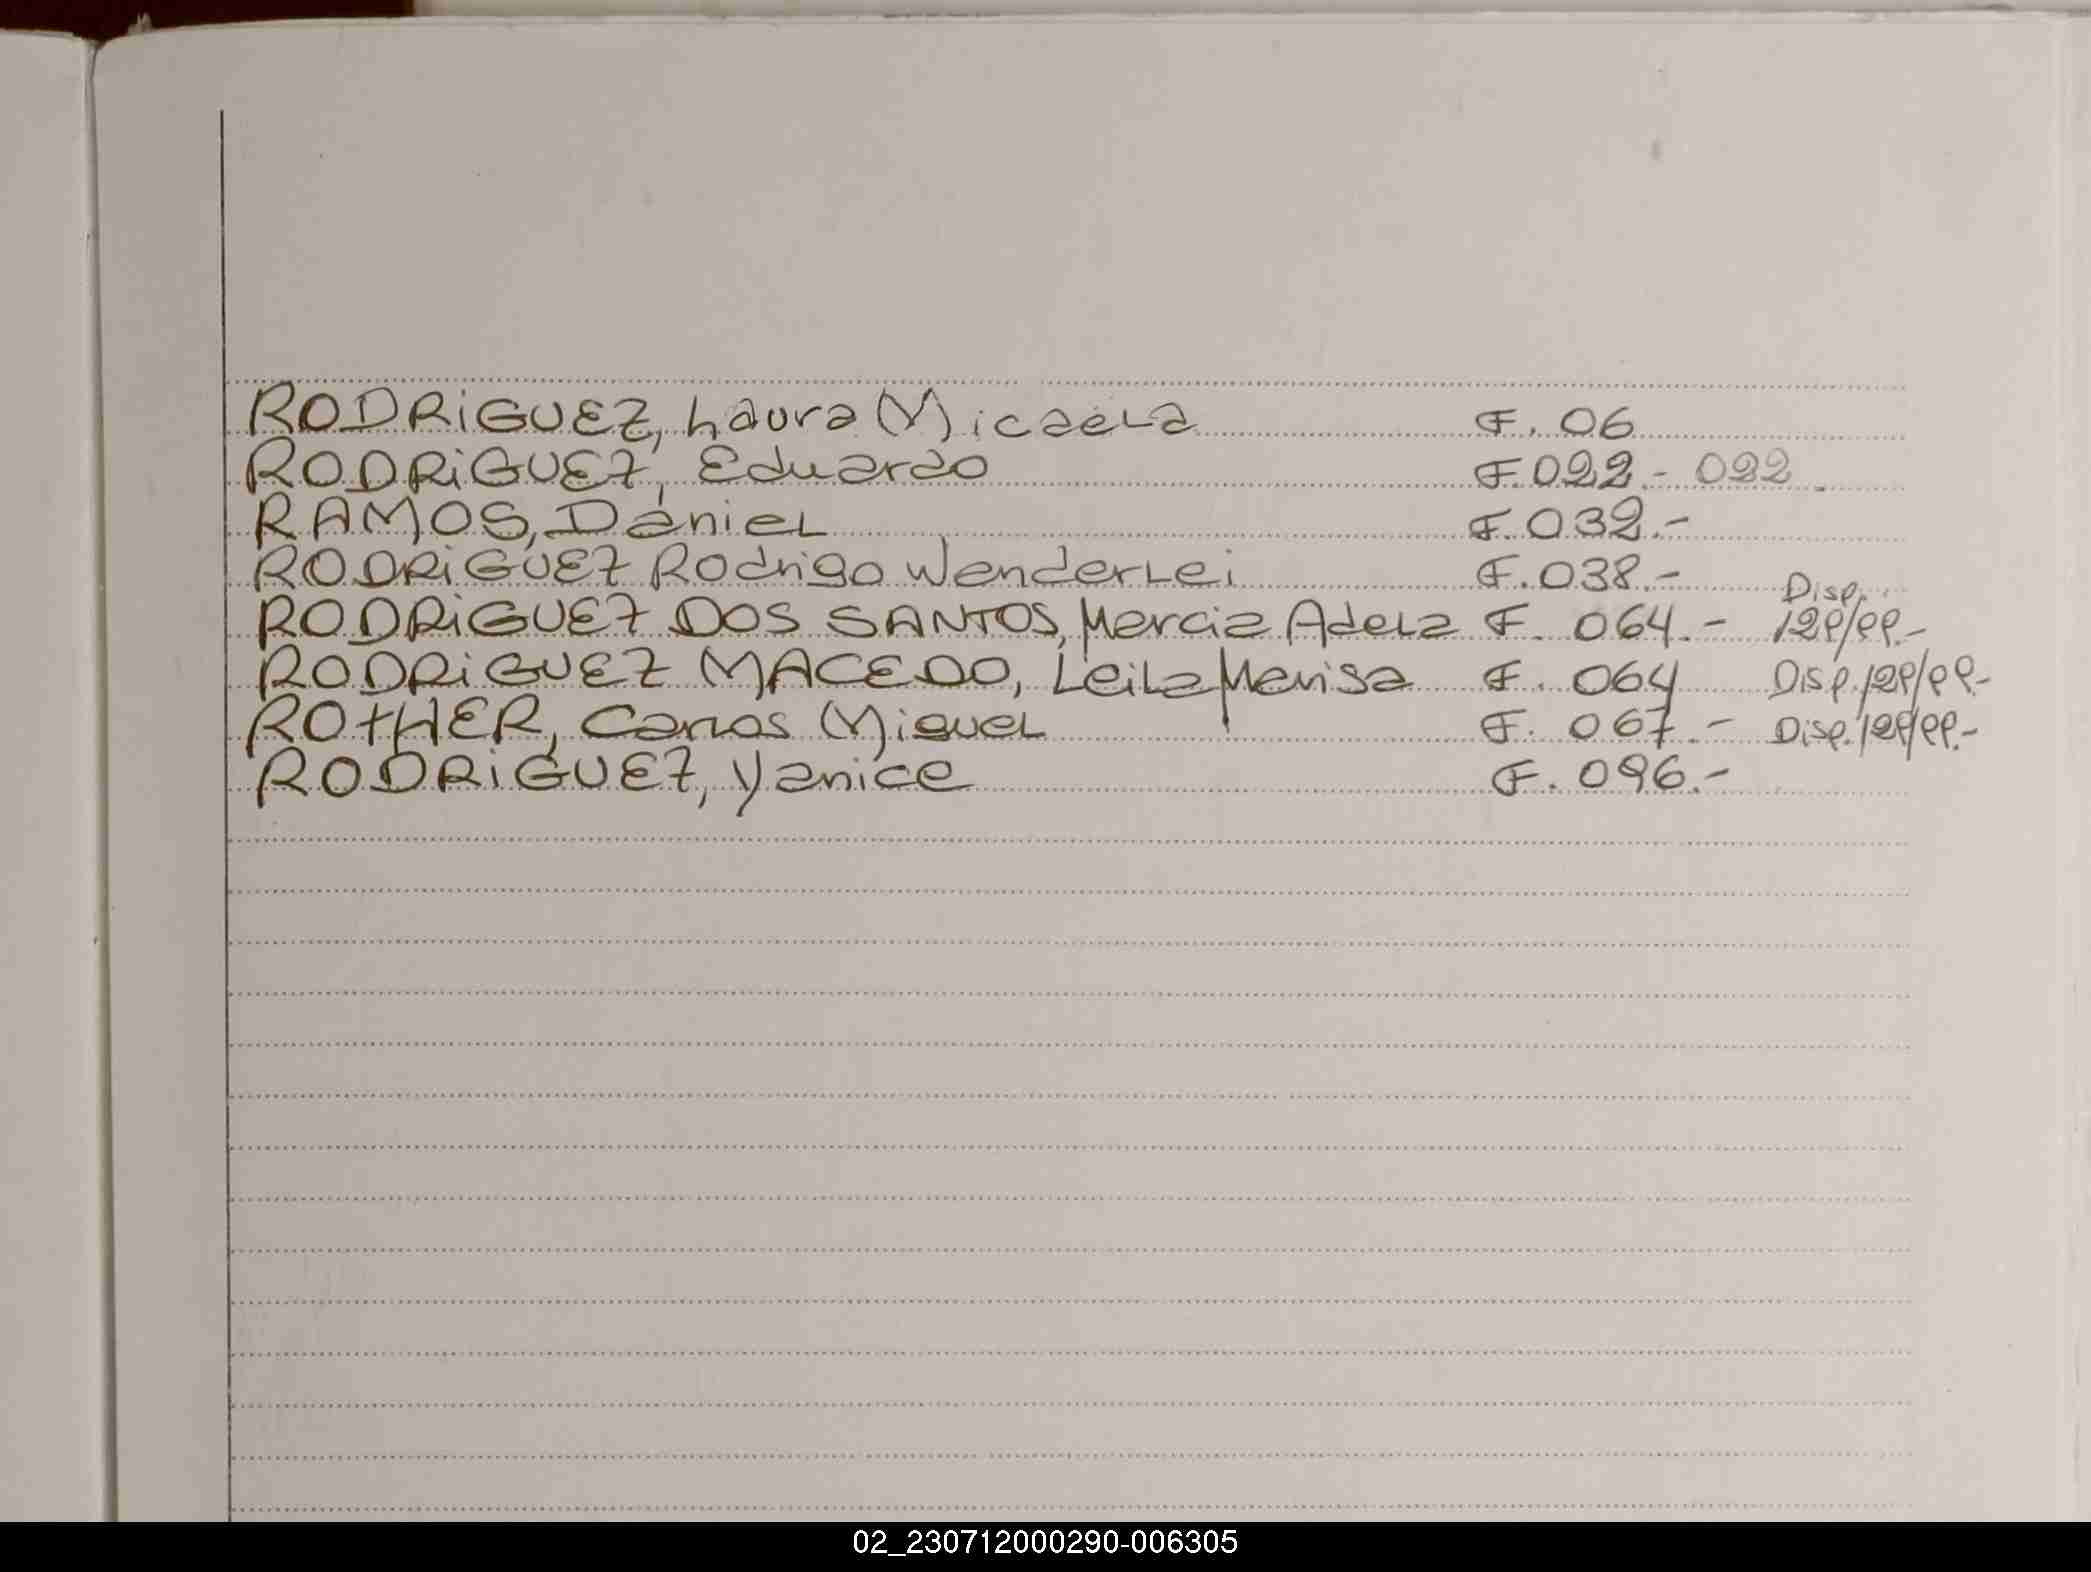 RODRIGUEZ, Laura Micaela F. 06
RODRIGUEZ, Eduardo F. 022.- 022.
RAMOS, Daniel F. 032.-
RODRIGUEZ Rodrigo Wenderlei F. 038.-
RODRIGUEZ DOS SANTOS, Marcia Adela F. 064.- Disp. 129/99.-
RODRIGUEZ MACEDO, Leila Marisa F. 064 Disp. 129/99.-
ROTHER, Carlos Miguel F. 067.- Disp. 129/99.-
RODRIGUEZ, Yanice F. 096.-
02_230712000290-006305